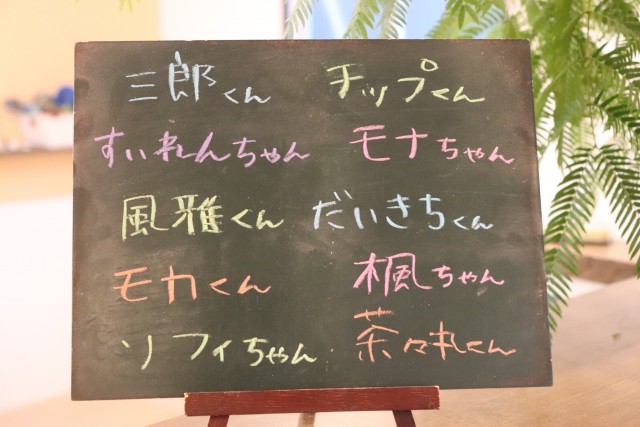 三郎くん チップくん
すいれんちゃん モナちゃん
風雅くん だいきちくん
モカくん 楓ちゃん
ソフィちゃん 茶々丸くん